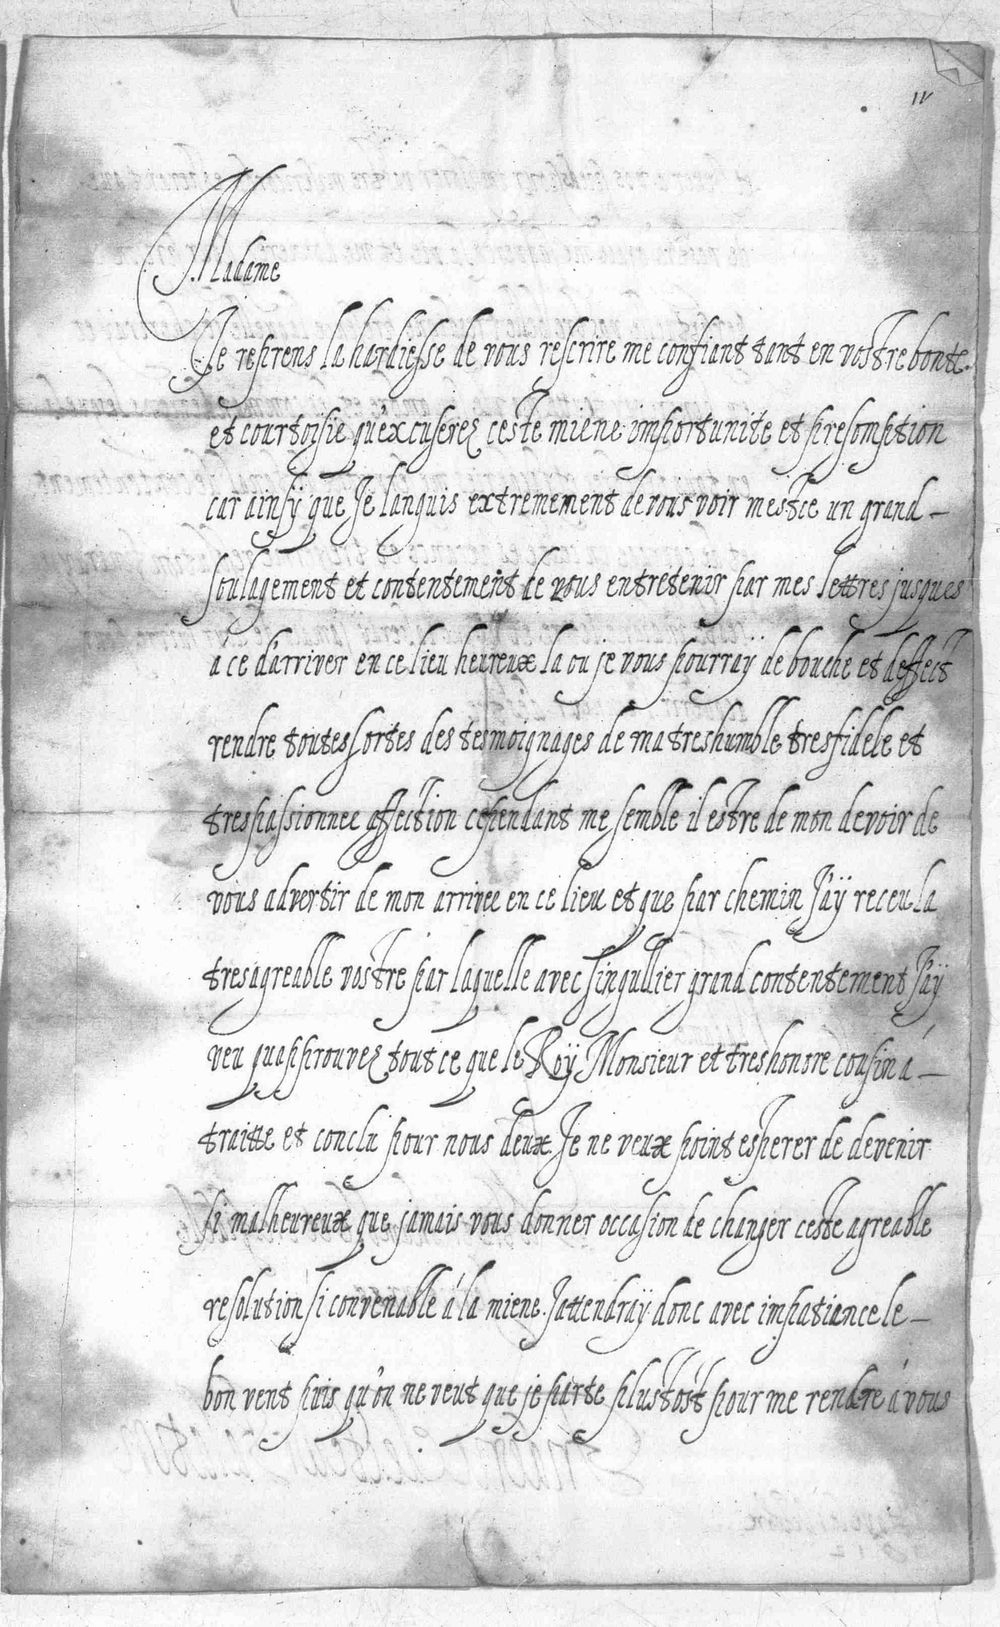 IV
Madame
Je reprens la hardiesse de vous rescrire me confiant tant en vostre bonte
et courtoisie qu'excuserez ceste miene importunite et presomption
car ainsÿ que Je languis extremement de vous voir mest ce un grand –
soulagement et contentement de vous entretenir par mes lettres jusques
á ce d'arriver en ce lieu heureux la ou je vous pourraÿ de bouche et deffect
rendre toutes sortes des tesmoignages de ma treshumble tresfidele et
trespassionnee affection cependant me semble il estre de mon devoir de
vous advertir de mon arrivee en ce lieu et que par chemin J'aÿ receu la
tresagreable vostre par laquelle avec singullier grand contentement J'aÿ
veu qu'approuvez tout ce que le Roÿ Monsieur et treshonore cousin á –
traitte et conclu pour nous deux. Je ne veux point esperer de devenir
si malheureux que jamais vous donner occasion de changer ceste agreable
resolution si convenable á la miene. Jattendraÿ donc avec impatiance le –
bon vent puis qu'on ne veut que je parte plustost pour me rendre á vous